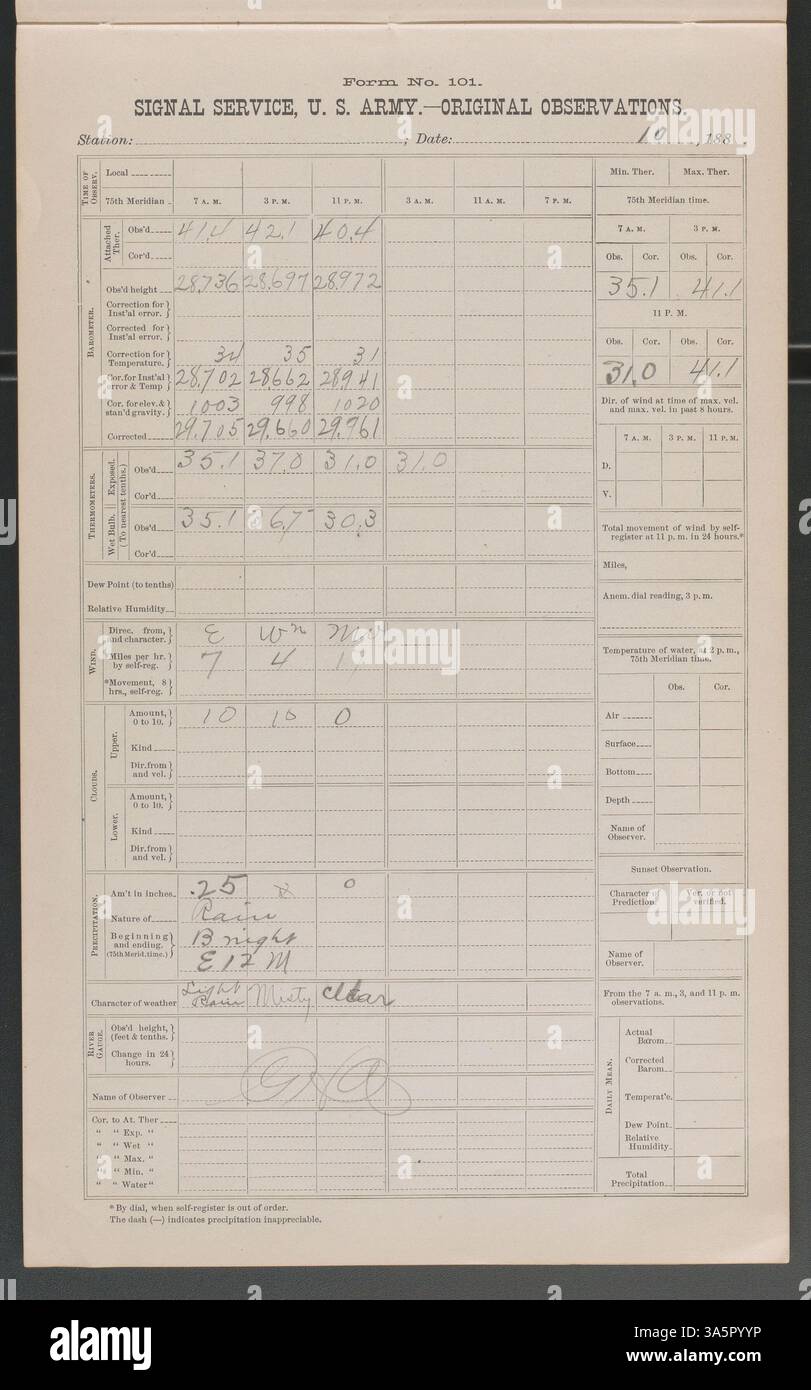 Form No. 101.
SIGNAL SERVICE, U. S. ARMY.—ORIGINAL OBSERVATIONS.
Station: ; Date: 10 , 188 .
TIME OF OBSERV. Local
75th Meridian 7 A. M. 3 P. M. 11 P. M. 3 A. M. 11 A. M. 7 P. M.
BAROMETER.
Attached Ther. Obs'd 41.4 42.1 40.4
Cor'd
Obs'd height 28.736 28.697 28.972
Correction for Inst'al error.
Corrected for Inst'al error.
Correction for Temperature. 34 35 31
Cor. for Inst'al error & Temp 28.702 28662 28941
Cor. for elev. & stan'd gravity. 1003 998 1020
Corrected 29.705 29.660 29.961
THERMOMETERS. (To nearest tenths.)
Exposed. Obs'd 35.1 37.0 31.0 31.0
Cor'd
Wet Bulb. Obs'd 35.1 36.7 30.3
Cor'd
Dew Point (to tenths)
Relative Humidity
WIND.
Direc. from, and character. E
Miles per hr. by self-reg. 7 4
*Movement, 8 hrs., self-reg.
CLOUDS.
Upper. Amount, 0 to 10. 10 10 0
Kind
Dir. from and vel.
Lower. Amount, 0 to 10.
Kind
Dir. from and vel.
PRECIPITATION.
Am't in inches .25 0
Nature of Rain
Beginning and ending. (75th Merid. time.) B night
E 12 M
Character of weather Light Rain Misty Clear
RIVER GAUGE.
Obs'd height, (feet & tenths.)
Change in 24 hours.
Name of Observer
Cor. to At. Ther
" " Exp. "
" " Wet "
" " Max. "
" " Min. "
" " Water "
* By dial, when self-register is out of order.
The dash (—) indicates precipitation inappreciable.
Min. Ther. Max. Ther.
75th Meridian time.
7 A. M. 3 P. M.
Obs. Cor. Obs. Cor.
35.1 41.1
11 P. M.
Obs. Cor. Obs. Cor.
31.0 41.1
Dir. of wind at time of max. vel. and max. vel. in past 8 hours.
7 A. M. 3 P. M. 11 P. M.
D.
V.
Total movement of wind by self-register at 11 p. m. in 24 hours.*
Miles,
Anem. dial reading, 3 p. m.
Temperature of water, at 2 p. m., 75th Meridian time.
Obs. Cor.
Air
Surface
Bottom
Depth
Name of Observer.
Sunset Observation.
Character of Prediction. Ver. or not verified.
Name of Observer.
From the 7 a. m., 3, and 11 p. m. observations.
DAILY MEAN.
Actual Barom.
Corrected Barom.
Temperat'e.
Dew Point.
Relative Humidity.
Total Precipitation
alamy
Image ID: 3A5PYYP
www.alamy.com